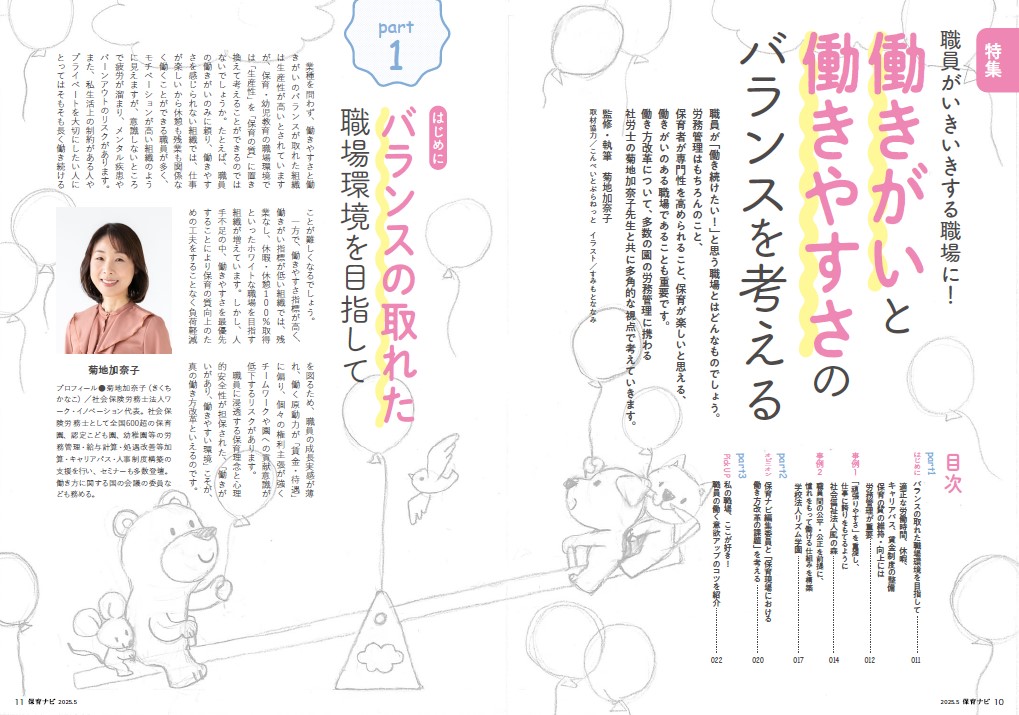 特集
職員がいきいきする職場に！
働きがいと
働きやすさの
バランスを考える
職員が「働き続けたい！」と思う職場とはどんなものでしょう。
労務管理はもちろんのこと、
保育者が専門性を高められること、保育が楽しいと思える、
働きがいのある職場であることも重要です。
働き方改革について、多数の園の労務管理に携わる
社労士の菊地加奈子先生と共に多角的な視点で考えていきます。
監修・執筆　菊地加奈子
取材協力／こんぺいとぷらねっと　イラスト／すみもとななみ
目次
part1
はじめに
バランスの取れた職場環境を目指して 011
適正な労働時間、休暇、
キャリアパス、賃金制度の整備
保育の質の維持・向上には
労務管理が重要 012
事例1
「頑張りやすさ」を重視し、
仕事に誇りをもてるように
社会福祉法人風の森 014
事例2
職員間の公平・公正を前提に、
慣れをもって働ける仕組みを構築
学校法人リズム学園 017
part2
オピニオン
保育ナビ編集委員と「保育現場における
働き方改革の課題」を考える 020
part3
Pick UP
私の職場、ここが好き！
職員の働く意欲アップのコツを紹介 022
2025.5 保育ナビ 10
part
1
はじめに
バランスの取れた
職場環境を目指して
業種を問わず、働きやすさと働
きがいのバランスが取れた組織
は生産性が高いとされています
が、保育・幼児教育の職場環境で
は「生産性」を「保育の質」に置き
換えて考えることができるのでは
ないでしょうか。たとえば、職員
の働きがいのみに頼り、働きやす
さを感じられない組織では、仕事
が楽しいから休憩も残業も関係な
く働くことができる職員が多く、
モチベーションが高い組織のよう
に見えますが、意識しないところ
で疲労が溜まり、メンタル疾患や
バーンアウトのリスクがあります。
また、私生活上の制約がある人や
プライベートを大切にしたい人に
とってはそもそも長く働き続ける
ことが難しくなるでしょう。
一方で、働きやすさ指標が高く、
働きがい指標が低い組織では、残
業なし、休暇・休憩100％取得
といったホワイトな職場を目指す
組織が増えています。しかし、人
手不足の中、働きやすさを最優先
することにより保育の質向上のた
めの工夫をすることなく負荷軽減
を図るため、職員の成長実感が薄
れ、働く原動力が「賃金・待遇」
に偏り、個々の権利主張が強く、
チームワークや園への貢献意識が
低下するリスクがあります。
職員に浸透する保育理念と心理
的安全性が担保された、「働きが
いがあり、働きやすい環境」こそが、
真の働き方改革といえるのです。
菊地加奈子
プロフィール●菊地加奈子（きくち
かなこ）／社会保険労務士法人ワ
ーク・イノベーション代表。社会保
険労務士として全国600超の保育
園、認定こども園、幼稚園等の労
務管理・給与計算・処遇改善等加
算・キャリアパス・人事制度構築の
支援を行い、セミナーも多数登壇。
働き方に関する国の会議の委員な
ども務める。
11 保育ナビ 2025.5